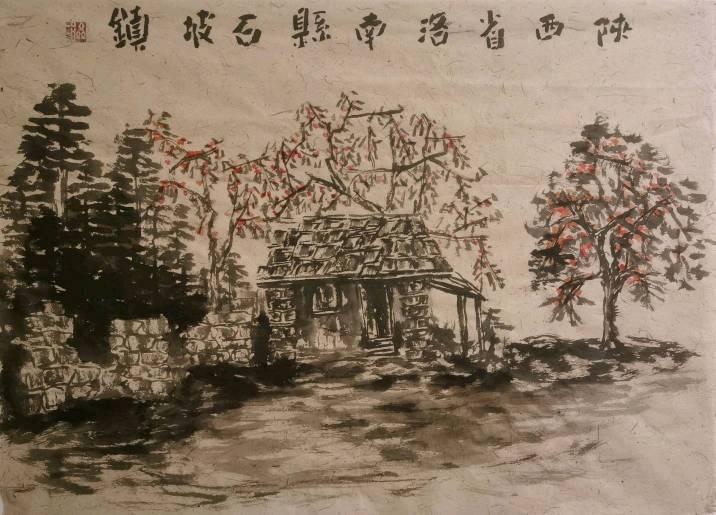 陕西省洛南縣石坡鎮